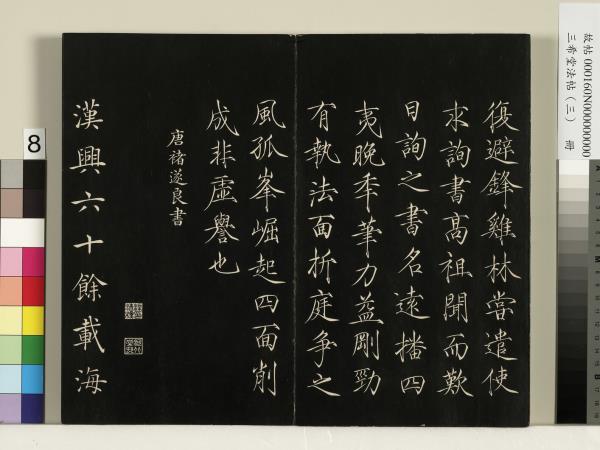 復避鋒雞林嘗遣使
求詢書高祖聞而歎
曰詢之書名遠播四
夷晚年筆力益剛勁
有執法面折庭爭之
風孤峯崛起四面削
成非虛譽也
唐褚遂良書
漢興六十餘載海
故帖 000160N000000000
三希堂法帖(三) 冊
8